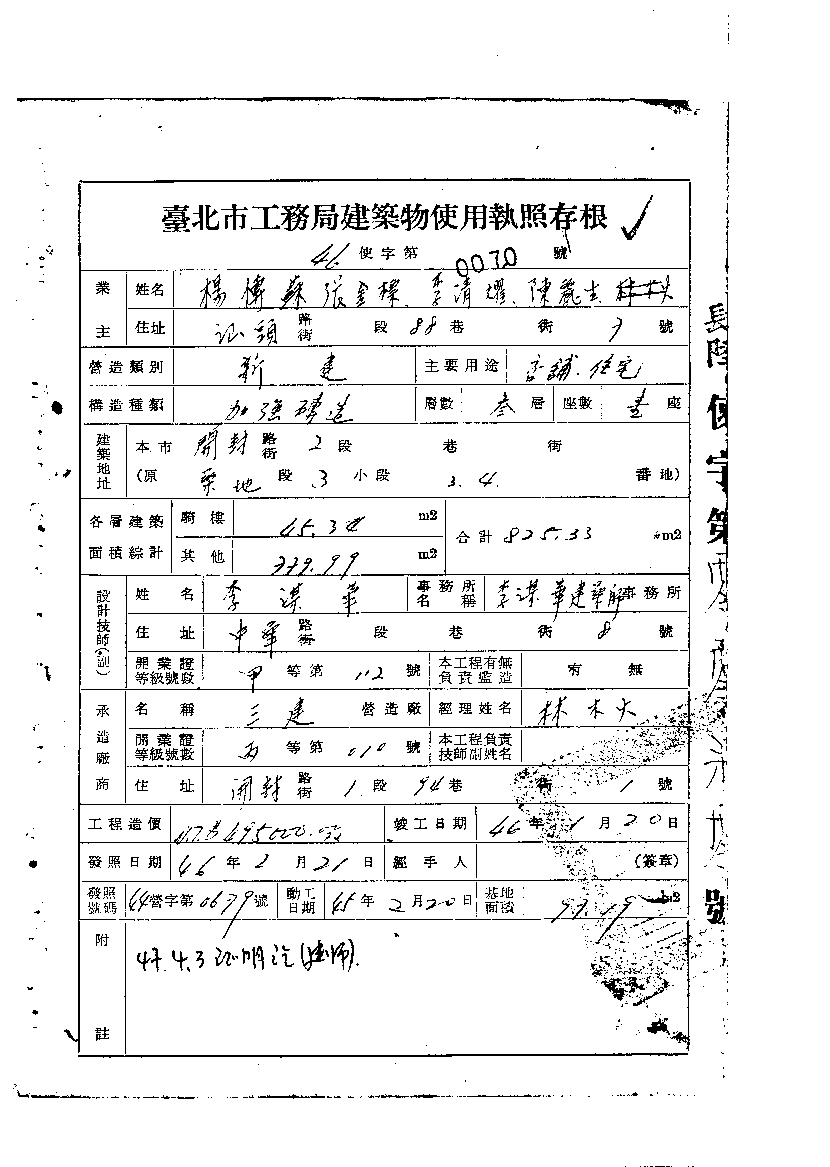 臺北市工務局建築物使用執照存根
46 使字第 0030 號
業主 姓名 楊 蘇 張金 李清燿、陳
住址 汕頭 路街 段 88 巷 街 7 號
營造類別 新建 主要用途 店舖.住宅
構造種類 加強磚造 層數 叁 層 座數 壹 座
建築地址 本市 開封 路街 2 段 巷 街
(原 段 3 小段 3.4. 番地)
各層建築面積綜計 騎樓 45.34 m2 合計 825.33 m2
其他 779.99 m2
設計技師(副) 姓名 李謀華 事務所名稱 李謀華建築師事務所
住址 中華 路街 段 巷 街 8 號
開業證等級號數 甲 等第 112 號 本工程有無負責監造 有 無
承造廠商 名稱 三建 營造廠 經理姓名 林木火
開業證等級號數 丙 等第 010 號 本工程負責技師副姓名
住址 開封 路街 1 段 94 巷 街 1 號
工程造價 NT$495000.00 竣工日期 46 年 1 月 20 日
發照日期 46 年 2 月 21 日 經手人 (簽章)
發照號碼 44 營字第 0679 號 動工日期 45 年 2 月 20 日 基地面積 m2
附註 47.4.3 證明訖
使字第
號